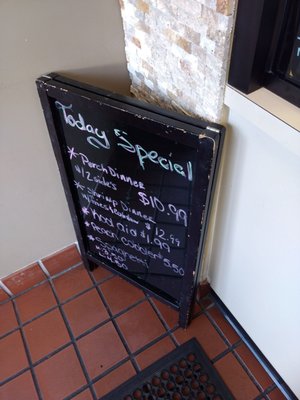 Today Special
* Perch Dinner
w/ 2 side's $10.99
* Shrimp Dinner
12.99
* Kool aid $1.99
* Peach Cobbler 5.50
* Spaghetti